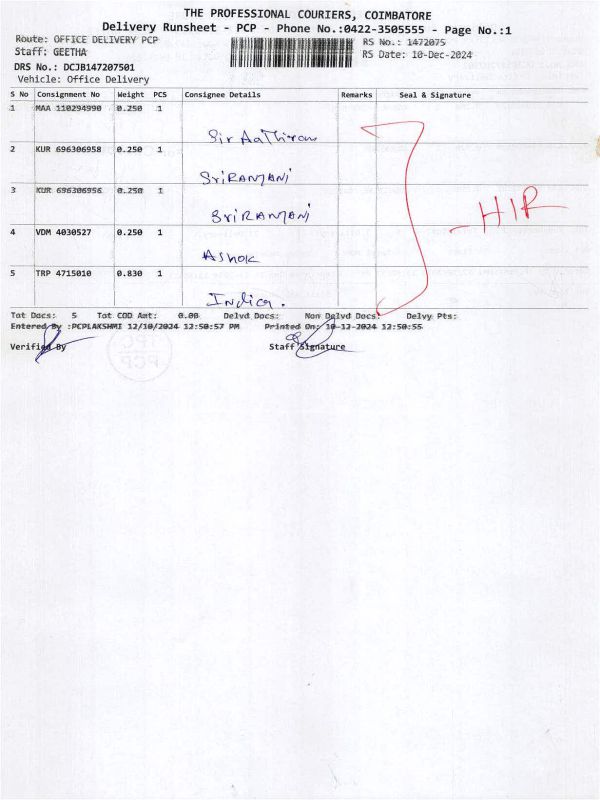 THE PROFESSIONAL COURIERS, COIMBATORE
Delivery Runsheet - PCP - Phone No.:0422-3505555 - Page No.:1
Route: OFFICE DELIVERY PCP RS No.: 1472075
Staff: GEETHA RS Date: 10-Dec-2024
DRS No.: DCJB147207501
Vehicle: Office Delivery
S No Consignment No Weight PCS Consignee Details Remarks Seal & Signature
1 MAA 110294990 0.250 1
Sir Aathiram
2 KUR 696306958 0.250 1
SriRANJANi
3 KUR 696306956 0.250 1
SriRANJANi
- HIR
4 VDM 4030527 0.250 1
ASHOK
5 TRP 4715010 0.830 1
Indica.
Tot Docs: 5 Tot COD Amt: 0.00 Delvd Docs: Non Delvd Docs: Delvy Pts:
Entered By :PCPLAKSHMI 12/10/2024 12:50:57 PM Printed On: 10-12-2024 12:50:55
Verified By Staff Signature